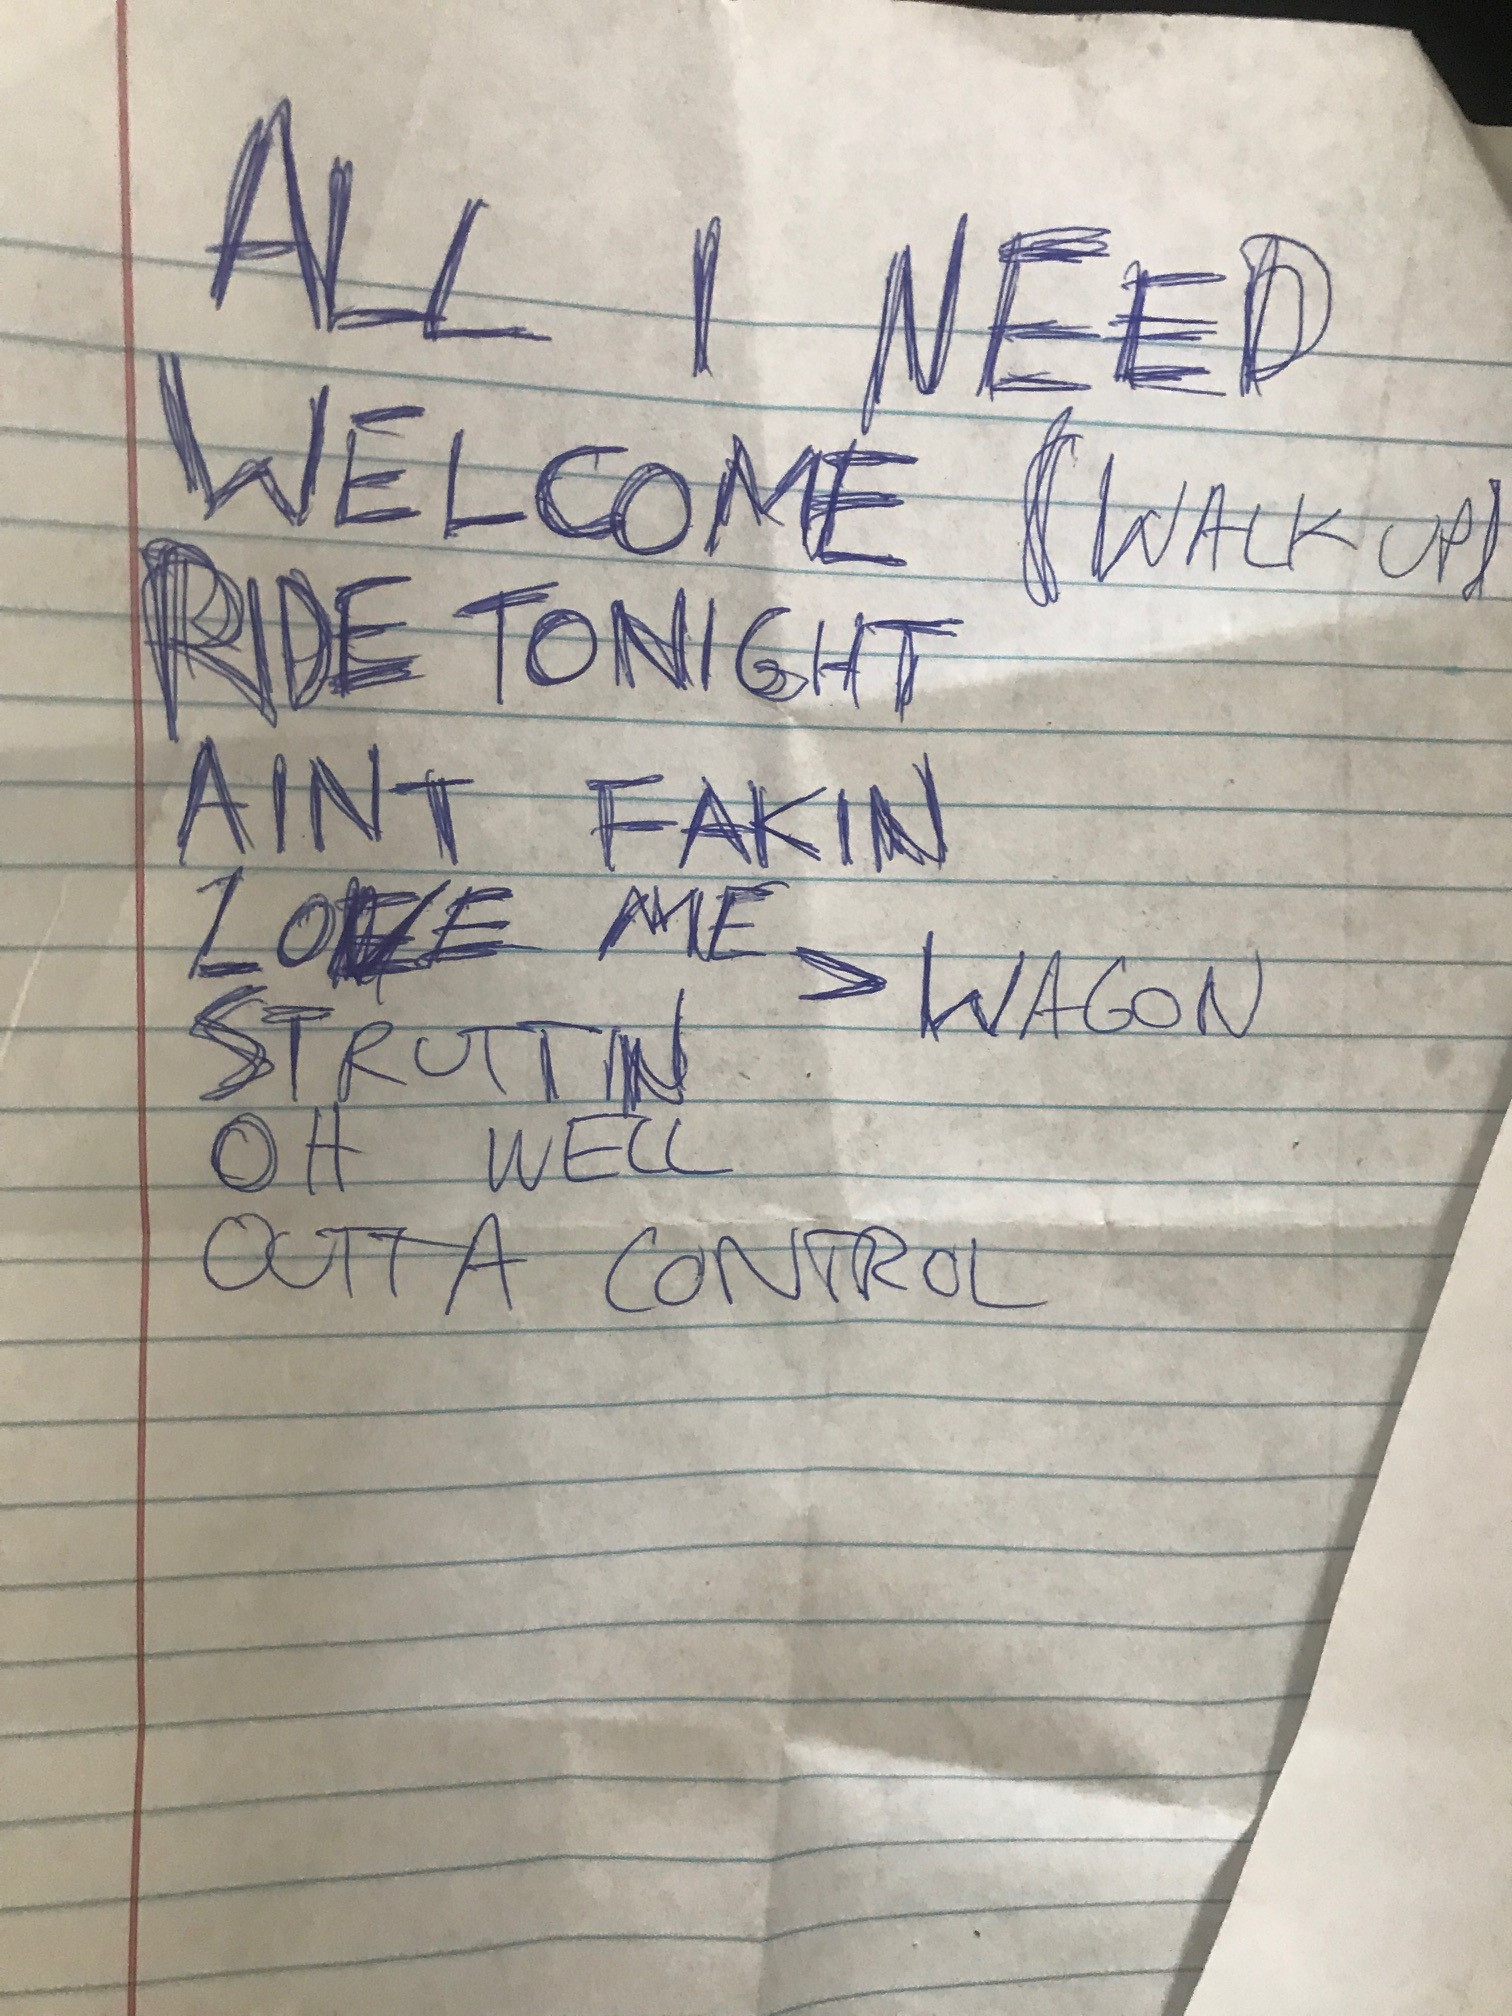 ALL I NEED
WELCOME (WALK UP)
RIDE TONIGHT
AINT FAKIN
LOVE ME
> WAGON
STRUTTIN
OH WELL
OUTTA CONTROL